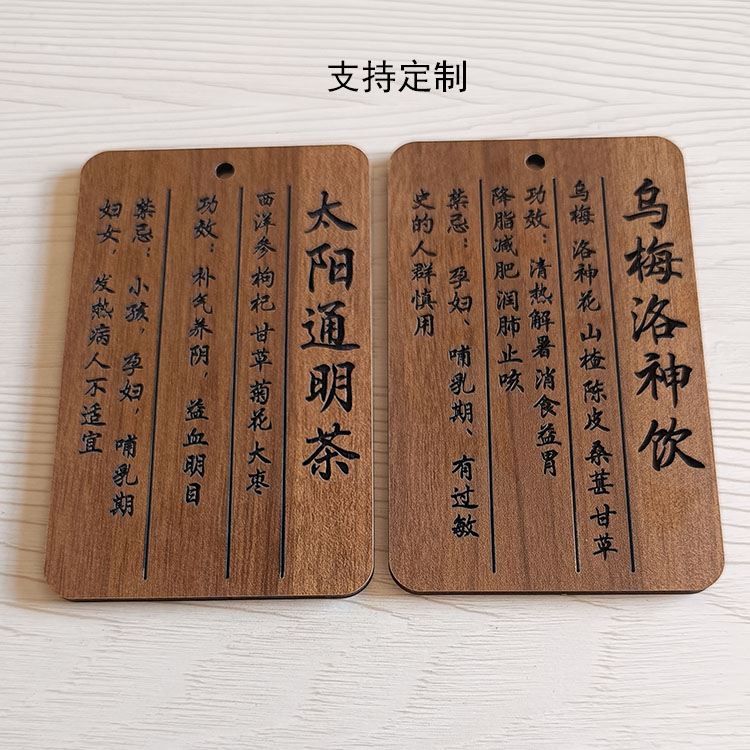 支持定制
太阳通明茶
西洋参 枸杞 甘草 菊花 大枣
功效：补气养阴，益血明目
禁忌：小孩，孕妇，哺乳期
妇女，发热病人不适宜
乌梅洛神饮
乌梅 洛神花 山楂 陈皮 桑葚 甘草
功效：清热解暑 消食益胃
降脂减肥 润肺止咳
禁忌：孕妇、哺乳期、有过敏
史的人群慎用